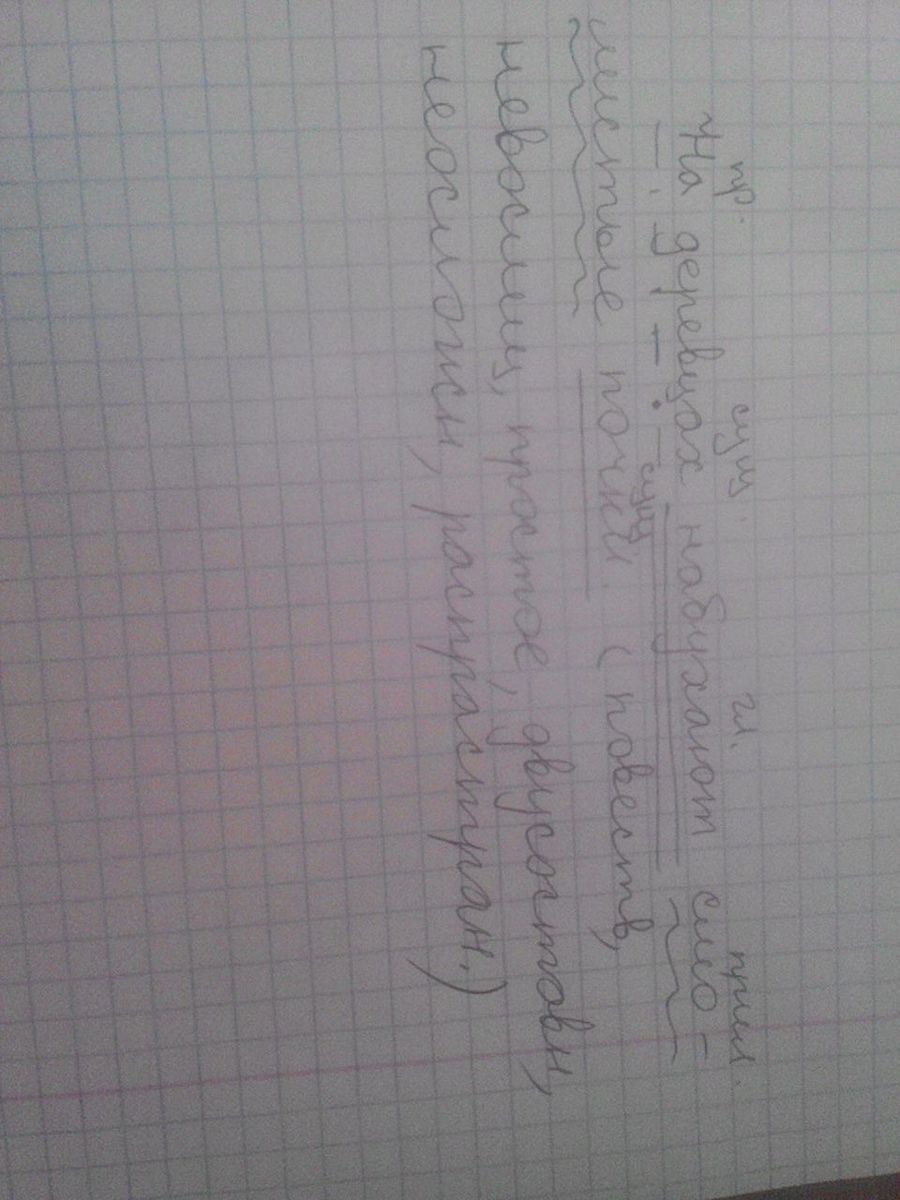 пр. сущ. гл. прил.
На деревцах набухают смо-
сущ.
листые почки. (повеств,
невосклиц, простое, двусоставн,
неосложн, распрастран.)